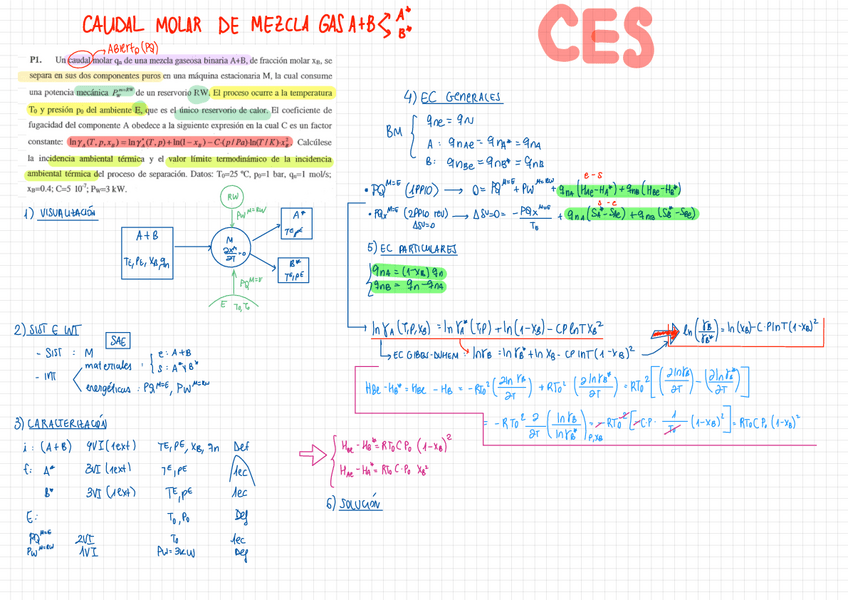 CAUDAL MOLAR DE MEZCLA GAS A+B < A* B*
CES
ABIERTO (PQ)
P1. Un caudal molar qn de una mezcla gaseosa binaria A+B, de fracción molar xB, se
separa en sus dos componentes puros en una máquina estacionaria M, la cual consume
una potencia mecánica PW^M=RW de un reservorio RW. El proceso ocurre a la temperatura
T0 y presión p0 del ambiente E, que es el único reservorio de calor. El coeficiente de
fugacidad del componente A obedece a la siguiente expresión en la cual C es un factor
constante: ln γA(T, p, xB) = ln γA*(T, p) + ln(1-xB) - C·(p/Pa)·ln(T/K)·xB². Calcúlese
la incidencia ambiental térmica y el valor límite termodinámico de la incidencia
ambiental térmica del proceso de separación. Datos: T0=25 ºC, p0=1 bar, qn=1 mol/s;
xB=0.4; C=5 10-7; PW=3 kW.
1) VISUALIZACIÓN
RW
PW^M=RW
A+B
TE, PE, XB, qn
M
A*
TE, PE
B*
TE, PE
PQ^M=E
E T0, P0
2) SIST E INT
SAE
- SIST : M
- INT
materiales : e : A+B
s : A*+B*
energéticos : PQ^M=E, PW^M=RW
3) CARACTERIZACIÓN
i : (A+B) 4VI (1ext) TE, PE, XB, qn Def
f: A* 3VI (1ext) TE, PE Iec
B* 3VI (1ext) TE, PE Iec
E: T0, P0 Def
PQ^M=E 2VI T0 Iec
PW^M=RW 1VI PW=3KW Def
4) EC GENERALES
BM
qne = qn
A : qnAe = qnA* = qnA
B: qnBe = qnB* = qnB
e - s
• PQ^M=E (1PPIO) → 0 = PQ^M=E + PW^M=RW + qnA (HAe-HA*) + qnB (HBe-HB*)
s - e
• PQx^M=E (2PPIO rev) → ΔSU=0 = - PQx^M=E / T0 + qnA (SA*-SAe) + qnB (SB*-SBe)
ΔSU=0
5) EC PARTICULARES
qnA = (1-XB) qn
qnB = qn - qnA
ln γA (T,P,XB) = ln γA* (T,P) + ln(1-XB) - CP ln T XB²
EC GIBBS-DUHEM : ln γB = ln γB* + ln XB - CP ln T (1-XB)²
ln (γB/γB*) = ln(XB) - C·P ln T (1-XB)²
HBe - HB* = HBe - HB = -RT0² (∂lnγB/∂T) + RT0² (∂lnγB*/∂T) = RT0² [(∂lnγB/∂T) - (∂lnγB*/∂T)]
= -RT0² ∂/∂T (ln γB/γB*)P,XB = -RT0² [-C·P· 1/T0 (1-XB)²] = RT0 C P0 (1-XB)²
HBe - HB* = RT0 C P0 (1-XB)²
HAe - HA* = RT0 C·P0 XB²
6) SOLUCIÓN